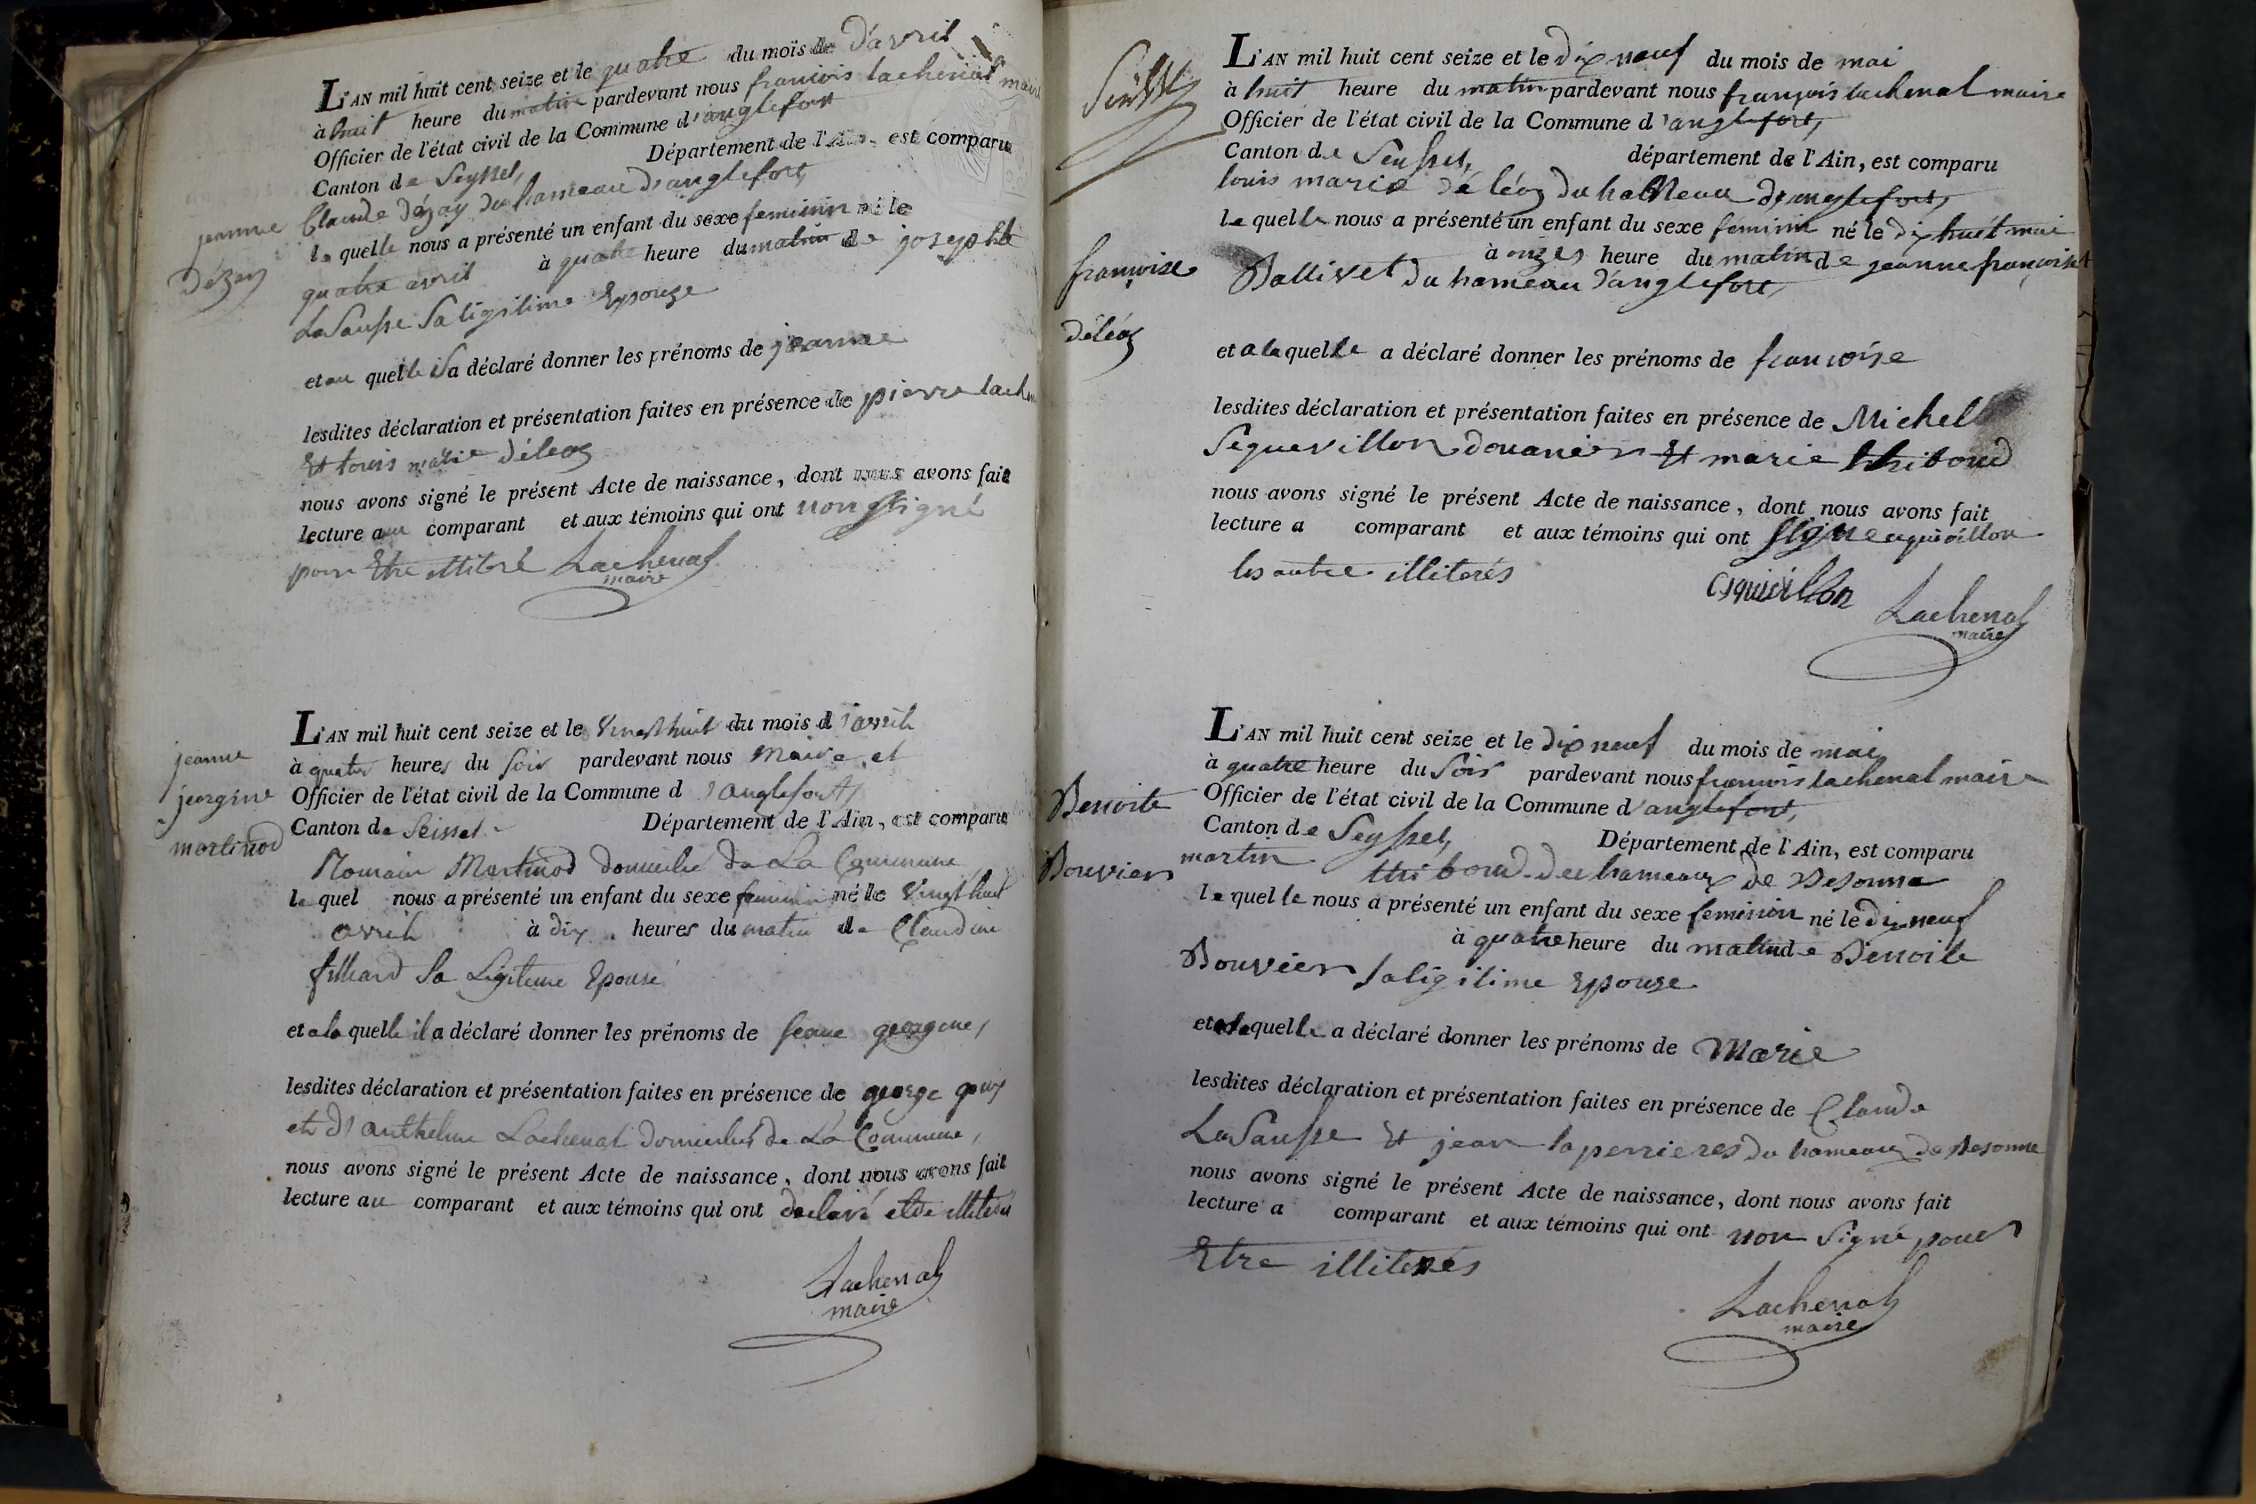 L'AN mil huit cent seize et le quatre du mois de d'avril
à huit heure du matin pardevant nous francois lachenal maire
Officier de l'état civil de la Commune d'anglefort
Canton de Seyssel, Département de l'Ain, est comparu
Claude dézay du hameau d'anglefort,
jeanne
dézay
le quelle nous a présenté un enfant du sexe feminin né le
quatre avril à quatre heure du matin de josephte
La Sausse Sa ligitime Epouze
et au quelle il a déclaré donner les prénoms de jeanne
lesdites déclaration et présentation faites en présence de pierre lachen
Et louis marie déléaz
nous avons signé le présent Acte de naissance, dont nous avons fait
lecture au comparant et aux témoins qui ont non signé
pour Etre illitéré Lachenal
maire
L'AN mil huit cent seize et le vingt huit du mois d'avril
à quatre heures du soir pardevant nous Maire et
Officier de l'état civil de la Commune d'anglefort,
Canton de Seissel Département de l'Ain, est comparu
jeanne
jeorgine
martinod
Romain Martinod domicilié de La Commune
le quel nous a présenté un enfant du sexe feminin né le vingt huit
avril à dix heures du matin de Claudine
filliard Sa Legitime Epouse
et a la quelle il a déclaré donner les prénoms de jeane georgine,
lesdites déclaration et présentation faites en présence de george goux
et d'anthelme Lachenal domiciliés de La Commune,
nous avons signé le présent Acte de naissance, dont nous avons fait
lecture au comparant et aux témoins qui ont declaré etre illiterés
Lachenal
maire
L'AN mil huit cent seize et le dix neuf du mois de mai
à huit heure du matin pardevant nous françois lachenal maire
Officier de l'état civil de la Commune d'anglefort,
Canton de Seyssel, département de l'Ain, est comparu
louis marie déléaz du hameau d'anglefort,
le quelle nous a présenté un enfant du sexe féminin né le dix huit mai
à onzes heure du matin de jeanne françoise
Ballivet du hameau d'anglefort,
françoise
déléaz
et a la quelle a déclaré donner les prénoms de françoise
lesdites déclaration et présentation faites en présence de Michell
Sequevillon douanier Et marie thiboud
nous avons signé le présent Acte de naissance, dont nous avons fait
lecture a comparant et aux témoins qui ont signé equivillon
les autre illiterés
Esquivillon
Lachenal
maire
L'AN mil huit cent seize et le dix neuf du mois de mai
à quatre heure du soir pardevant nous françois lachenal maire
Officier de l'état civil de la Commune d'anglefort,
Canton de Seyssel, Département de l'Ain, est comparu
Benoite
Bouvier
martin thiboud des hameaux de Bezonne
le quel le nous a présenté un enfant du sexe feminin né le dix neuf
à quatre heure du matin de Benoite
Bouvier Sa ligitime Epouze
et a la quelle a déclaré donner les prénoms de Marie
lesdites déclaration et présentation faites en présence de Claude
La Sausse Et jean laperrieres du hameau de Besonne
nous avons signé le présent Acte de naissance, dont nous avons fait
lecture a comparant et aux témoins qui ont non Signé pour
Etre illiterés
Lachenal
maire